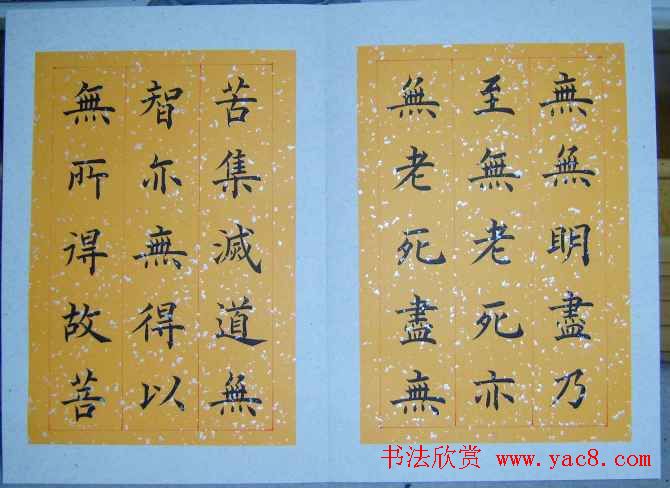 無無明盡乃
至無老死亦
無老死盡無
苦集滅道無
智亦無得以
無所得故菩
书法欣赏 www.yac8.com